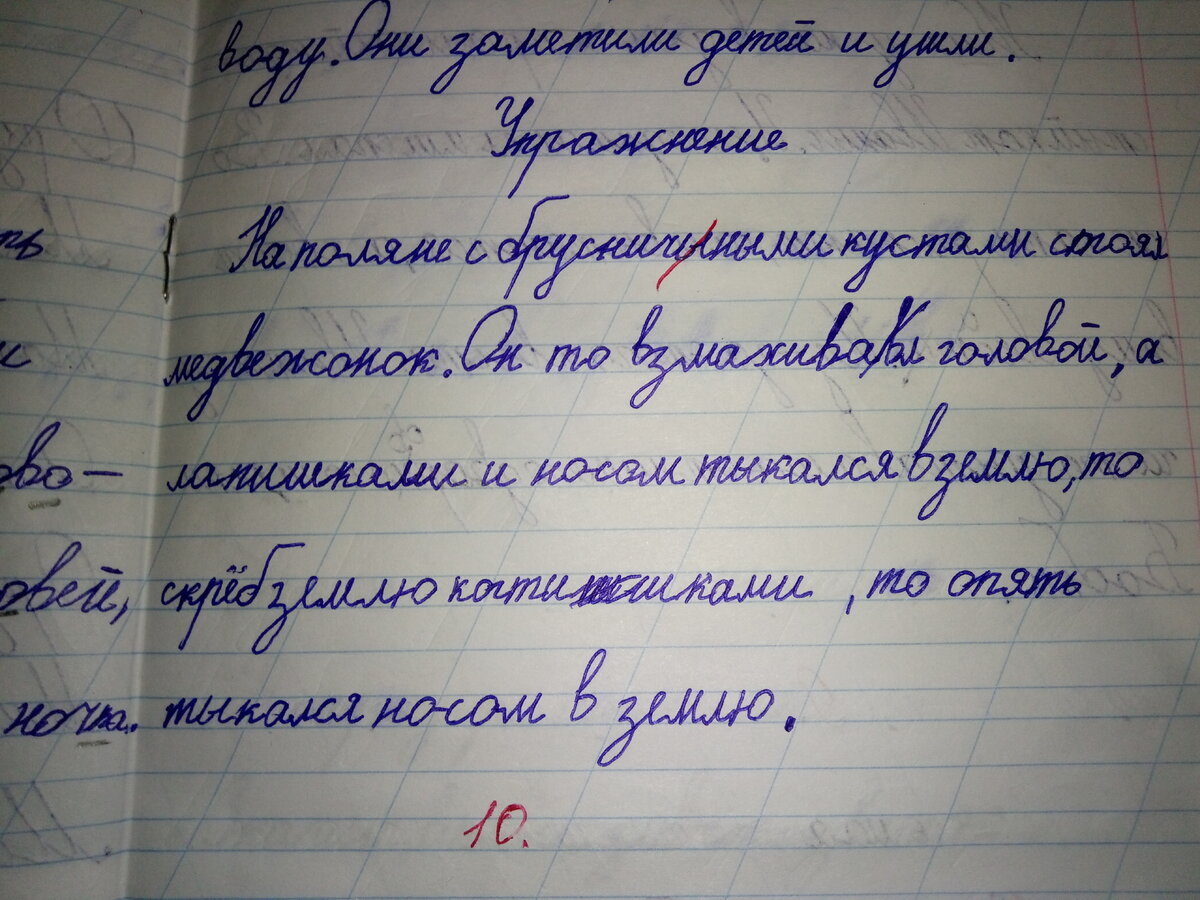 воду. Они заметили детей и ушли.
Упражнение
На поляне с брусничными кустами стоял
медвежонок. Он то взмахивал головой, а
лапишками и носом тыкался в землю, то
скрёб землю когтишками, то опять
тыкался носом в землю.
10.
ть
и
ово-
овей,
ночка.